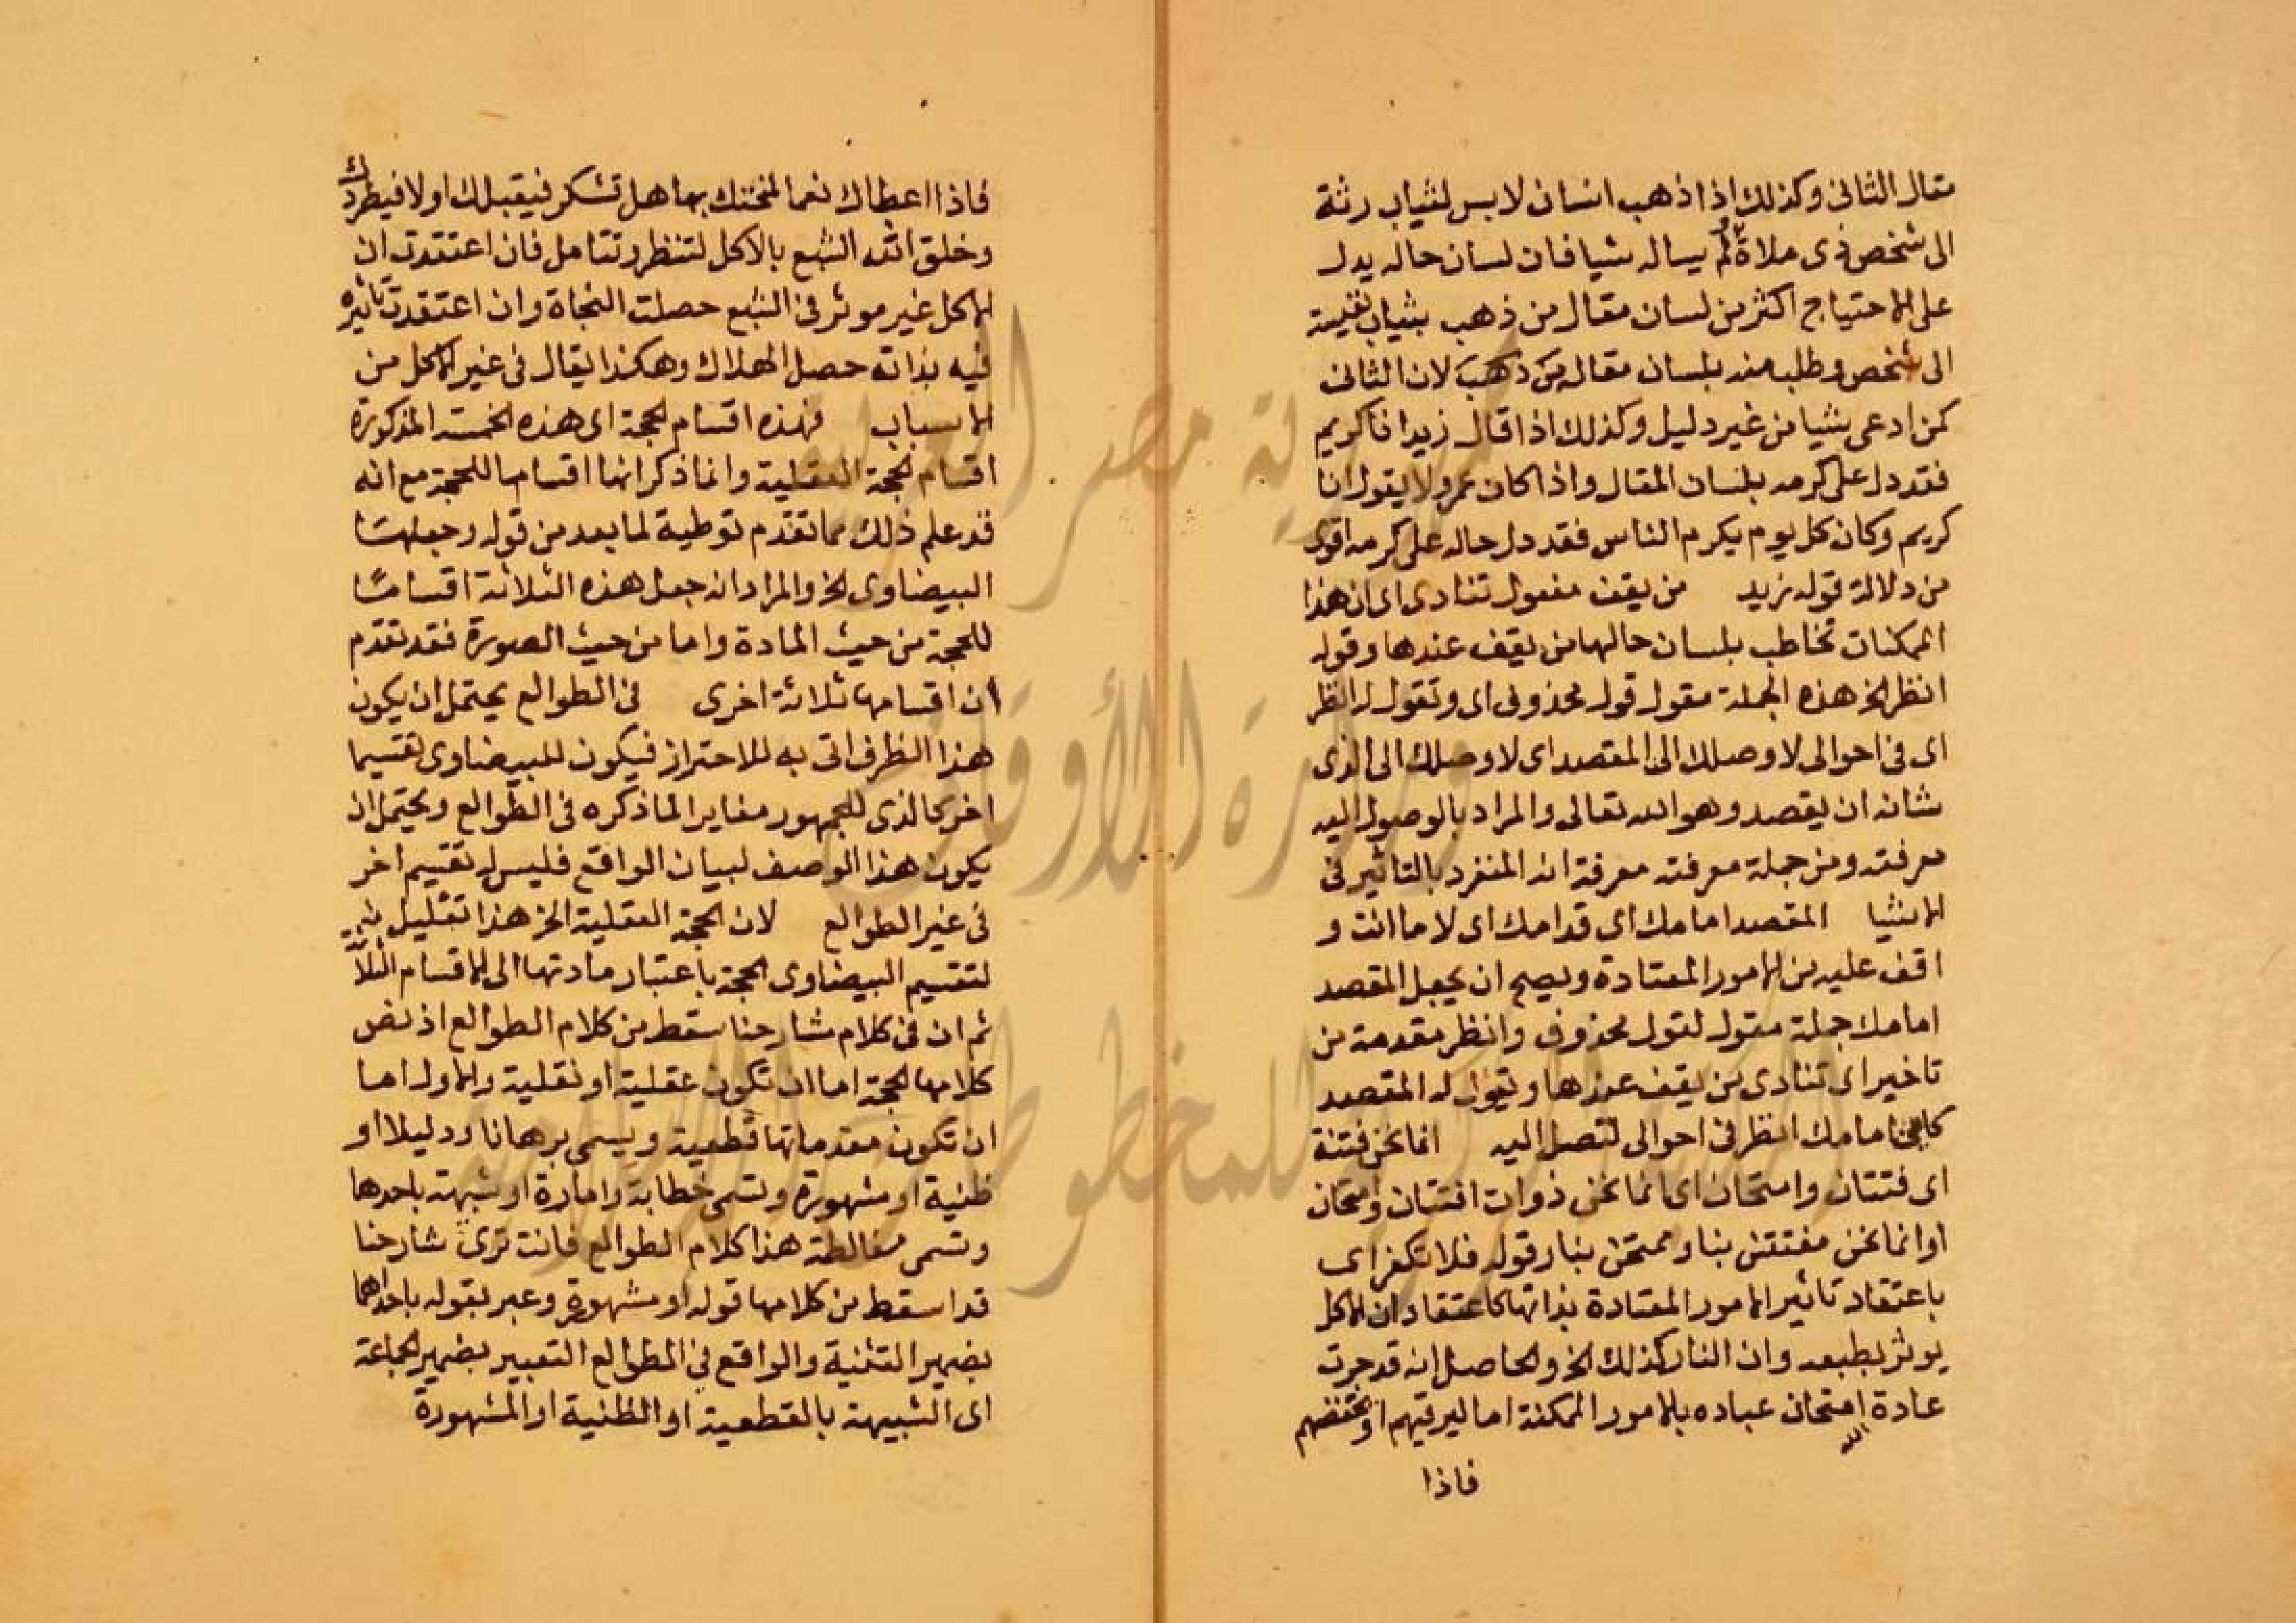 مقال الثانى وكذلك اذا ذهب انسان لابس لثياب رثة
الى شخص ذى ملاة ولم يساله شيا فان لسان حاله يدل
على الاحتياج اكثر من لسان مقال من ذهب بثياب نفيسة
الى شخص وطلب منه بلسان مقاله من ذهب لان الثانى
كمن ادعى شيا من غير دليل وكذلك اذا قال زيد انا كريم
فقد دل على كرمه بلسان المقال واذا كان عمرو لا يقول انا
كريم وكان كل يوم يكرم الناس فقد دل حاله على كرمه اقوى
من دلالة قوله زيد من يقف مفعول تنادى اى ان هذا
الممكنات تخاطب بلسان حالها من يقف عندها وقوله
انظر الخ هذه الجملة مقول قول محذوف اى وتقول له انظر
اى فى احوالى لاوصلك الى المقصد اى لاوصلك الى الذى
شانه ان يقصد وهو الله تعالى والمراد بالوصول اليه
معرفته ومن جملة معرفته معرفة انه المنفرد بالتاثير فى
الاشيا المقصد امامك اى قدامك اى لا ما انت و
اقف عليه من الامور المعتادة ويصح ان يجعل المقصد
امامك جملة مقول لقول محذوف وانظر مقدمة من
تاخير اى تنادى من يقف عندها وتقول له المقصد
امامك انظر فى احوالى لتصل اليه انما نحن فتنة
اى فتتان وامتحان اى انما نحن ذوات افتتان وامتحان
اوانما نحن مفتتن بنا وممتحن بنا وقوله فلا تكفر اى
باعتقاد تاثير الامور المعتادة بذاتها كاعتقاد ان الاكل
يوثر بطبعه وان النار كذلك الخ والحاصل انه قد جرت
عادة الله امتحان عباده بالامور الممكنة اما ليرقيهم او يخفضهم
فاذا
فاذا اعطاك نعما امتحنك بها هل تشكر فيقبلك اولا فيطردك
وخلق الله الشبع بالاكل لتنظر وتتامل فان اعتقدت ان
الاكل غير موثر فى الشبع حصلت النجاة وان اعتقدت تاثيره
فيه بذاته حصل الهلاك وهكذا يقال فى غير الاكل من
الاسباب فهذه اقسام الحجة اى هذه الخمسة المذكورة
اقسام الحجة العقلية وانما ذكر انها اقسام للحجة مع انه
قد علم ذلك مما تقدم توطية لما بعد من قوله وجعلها
البيضاوى الخ والمراد انه جعل هذه الثلاثة اقساما
للحجة من حيث المادة واما من حيث الصورة فقد تقدم
ان اقسامها ثلاثة اخرى فى الطوالع يحتمل ان يكون
هذا الظرف اتى به للاحتراز فيكون للبيضاوى تقسيما
اخر كالذى للجمهور مغايرا لما ذكره فى الطوالع ويحتمل ان
يكون هذا الوصف لبيان الواقع فليس له تقسيم اخر
فى غير الطوالع لان الحجة العقلية الخ هذا تعليل
لتقسيم البيضاوى الحجة باعتبار مادتها الى الاقسام الثلاثة
ثم ان فى كلام شارحنا سقط من كلام الطوالع اذ نص
كلامها الحجة اما ان تكون عقلية او نقلية والاول اما
ان تكون مقدماتها قطعية ويسمى برهانا ودليلا او
ظنية او مشهورة وتسمى خطابة وامارة او شبهة باحدها
وتسمى مغالطة هذا كلام الطوالع فانت ترى شارحنا
قد اسقط من كلامها قوله او مشهورة وعبر بقوله باحداهما
بضمير التثنية والواقع فى الطوالع التعبير بضمير الجماعة
اى الشبيهة بالقطعية او الظنية او المشهورة
جمهورية مصر العربية
وزارة الأوقاف
للمخطوطات الإسلامية